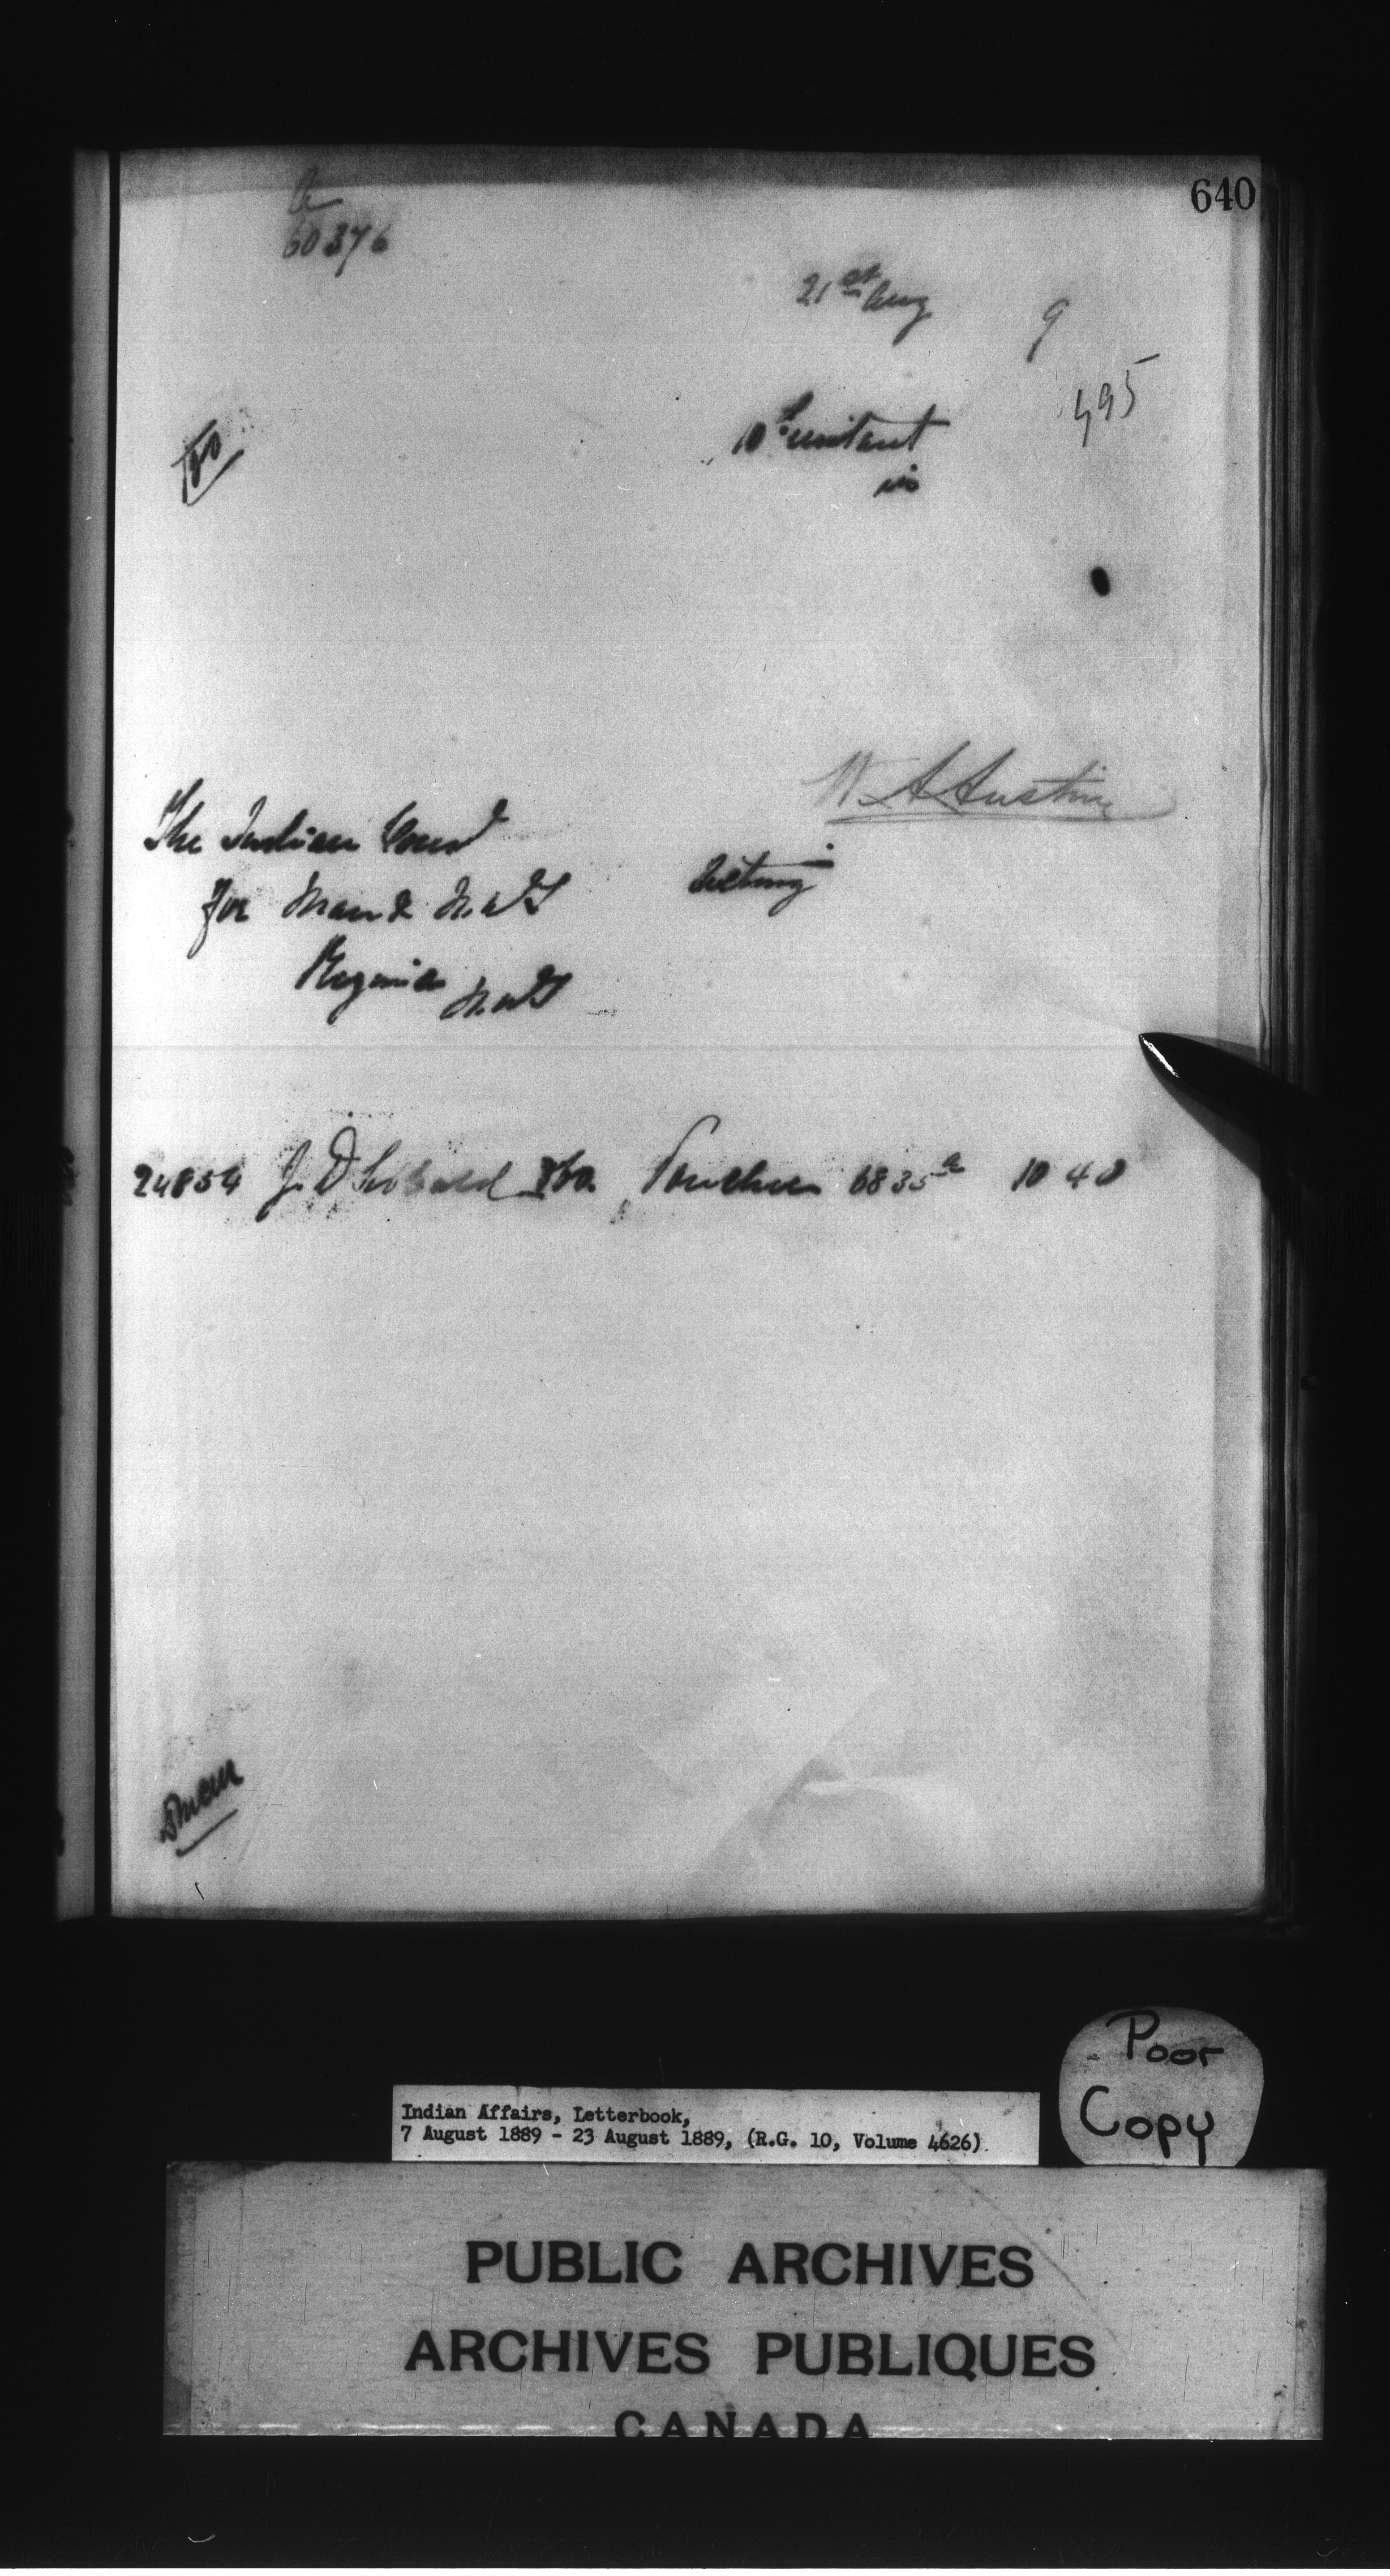 640
60376
21st Aug 9
495
10 instant
in
W. A. Austin
The Indian Comr
Acting
for Man & N.W.T
Regina N.W.T
24854 J. D. Sibbald &Co. Voucher 6835a 10 40
Poor
Copy
Indian Affairs, Letterbook,
7 August 1889 - 23 August 1889, (R.G. 10, Volume 4626)
PUBLIC ARCHIVES
ARCHIVES PUBLIQUES
CANADA